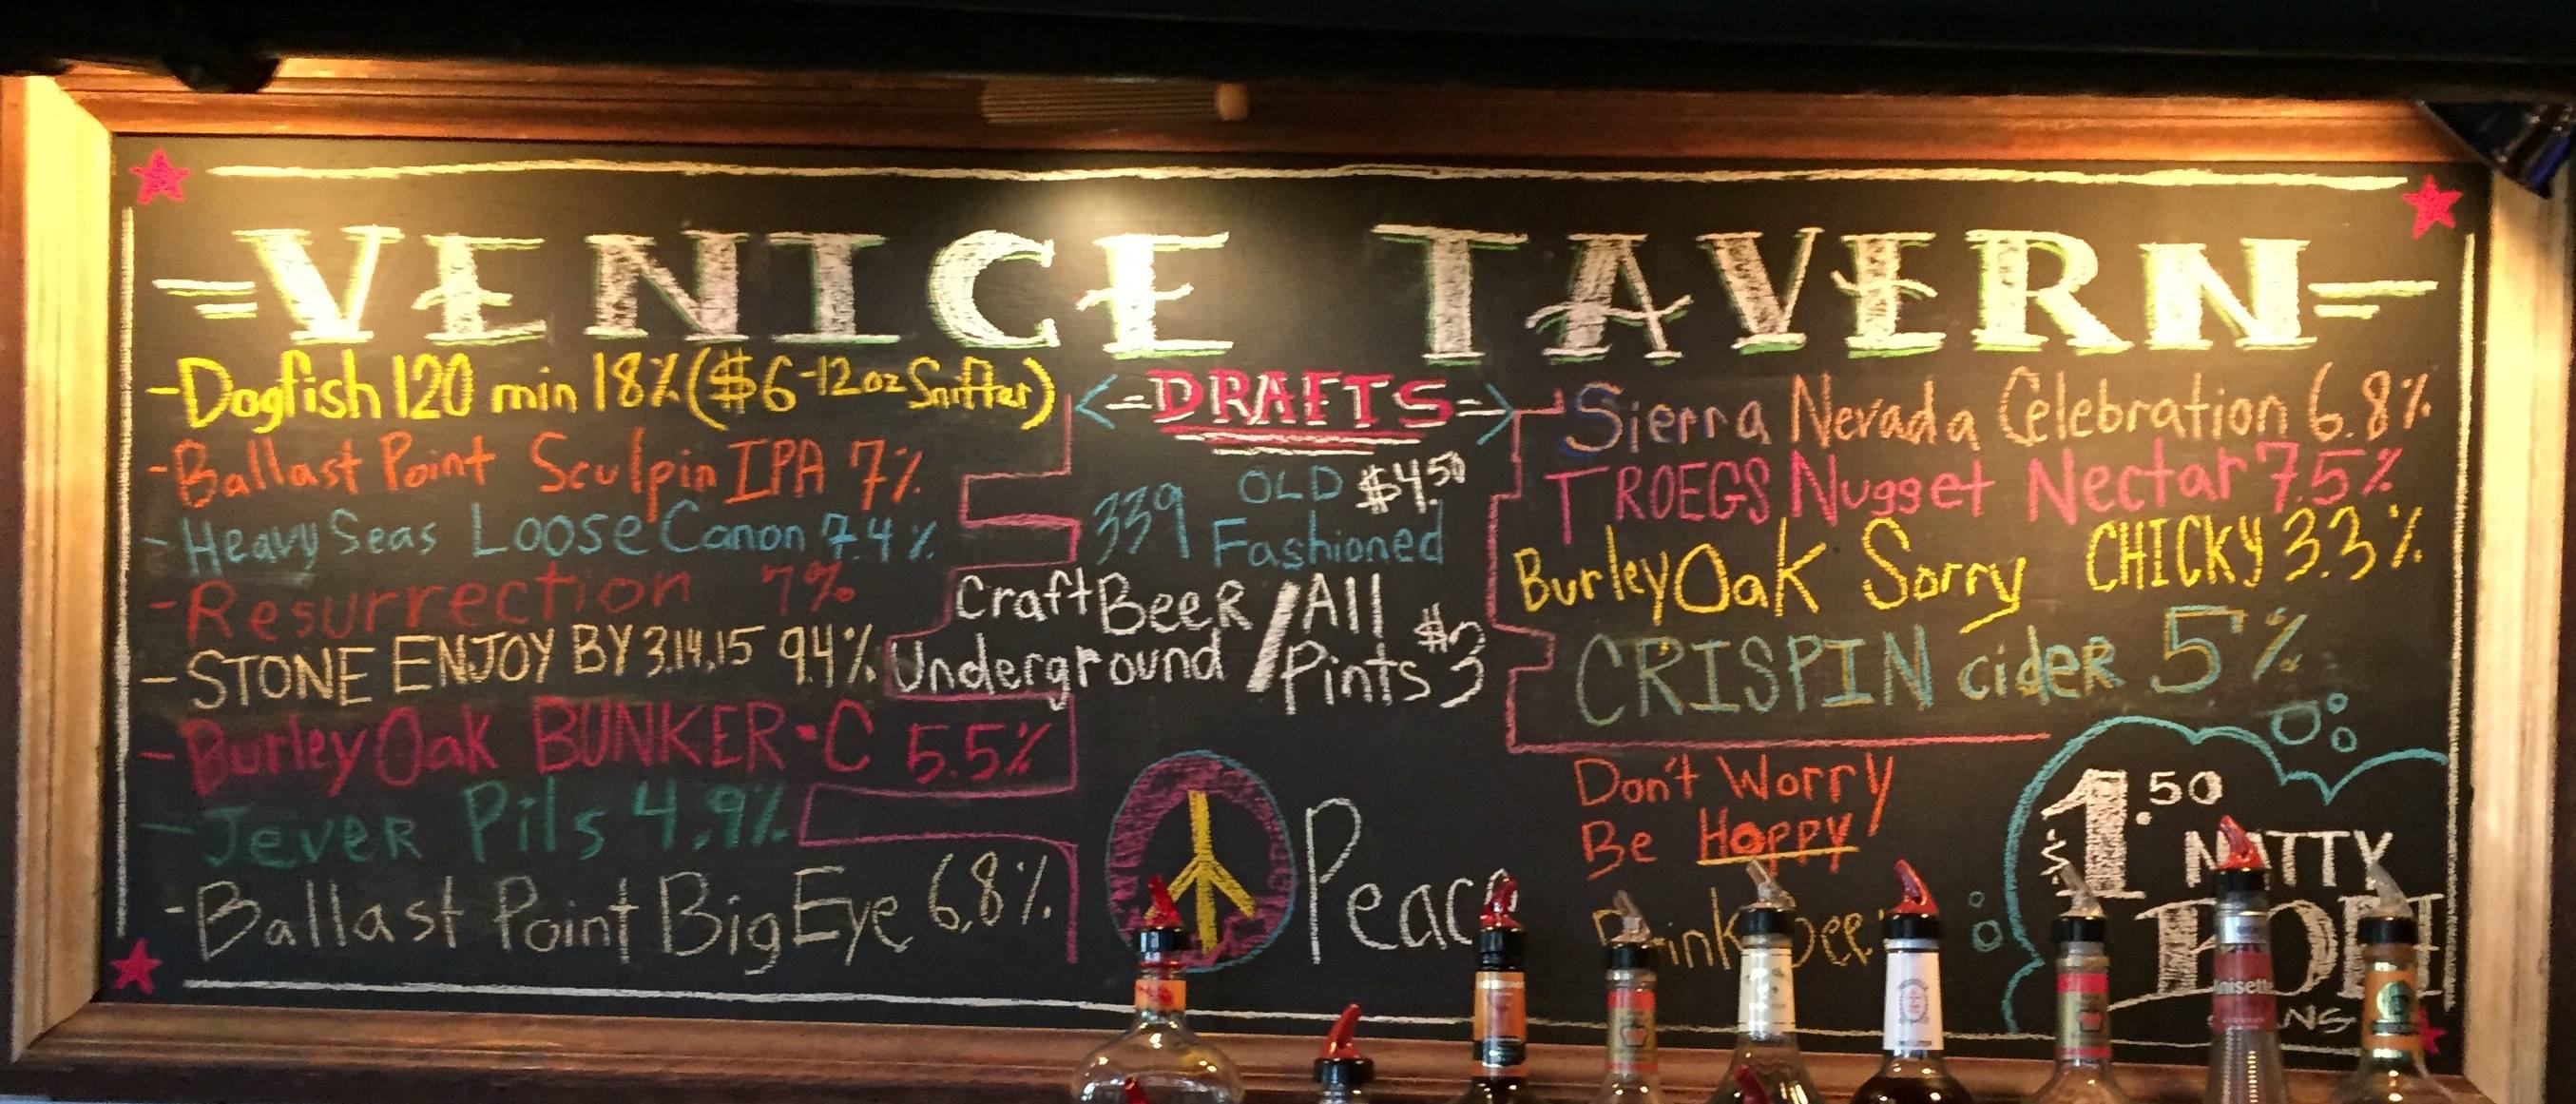 VENICE TAVERN
-Dogfish 120 min 18% ($6-12oz Snifter)
-Ballast Point Sculpin IPA 7%
-Heavy Seas Loose Canon 7.4%
-Resurrection 7%
-STONE ENJOY BY 3.14.15 9.4%
-Burley Oak BUNKER-C 5.5%
-Jever Pils 4.9%
-Ballast Point Big Eye 6.8%
<-DRAFTS->
339 OLD $4.50
Fashioned
Craft Beer / All
Underground / Pints $3
Peace
Sierra Nevada Celebration 6.8%
TROEGS Nugget Nectar 7.5%
Burley Oak Sorry CHICKY 3.3%
CRISPIN cider 5%
Don't Worry
Be Hoppy
Drink Beer
$1.50
NATTY
BOH
Anisette